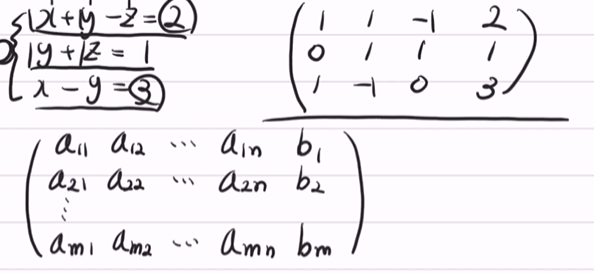 1x+1y-z=2
1y+1z=1
x-y=3
1 1 -1 2
0 1 1 1
1 -1 0 3
a11 a12 ... a1n b1
a21 a22 ... a2n b2
⋮
am1 am2 ... amn bm